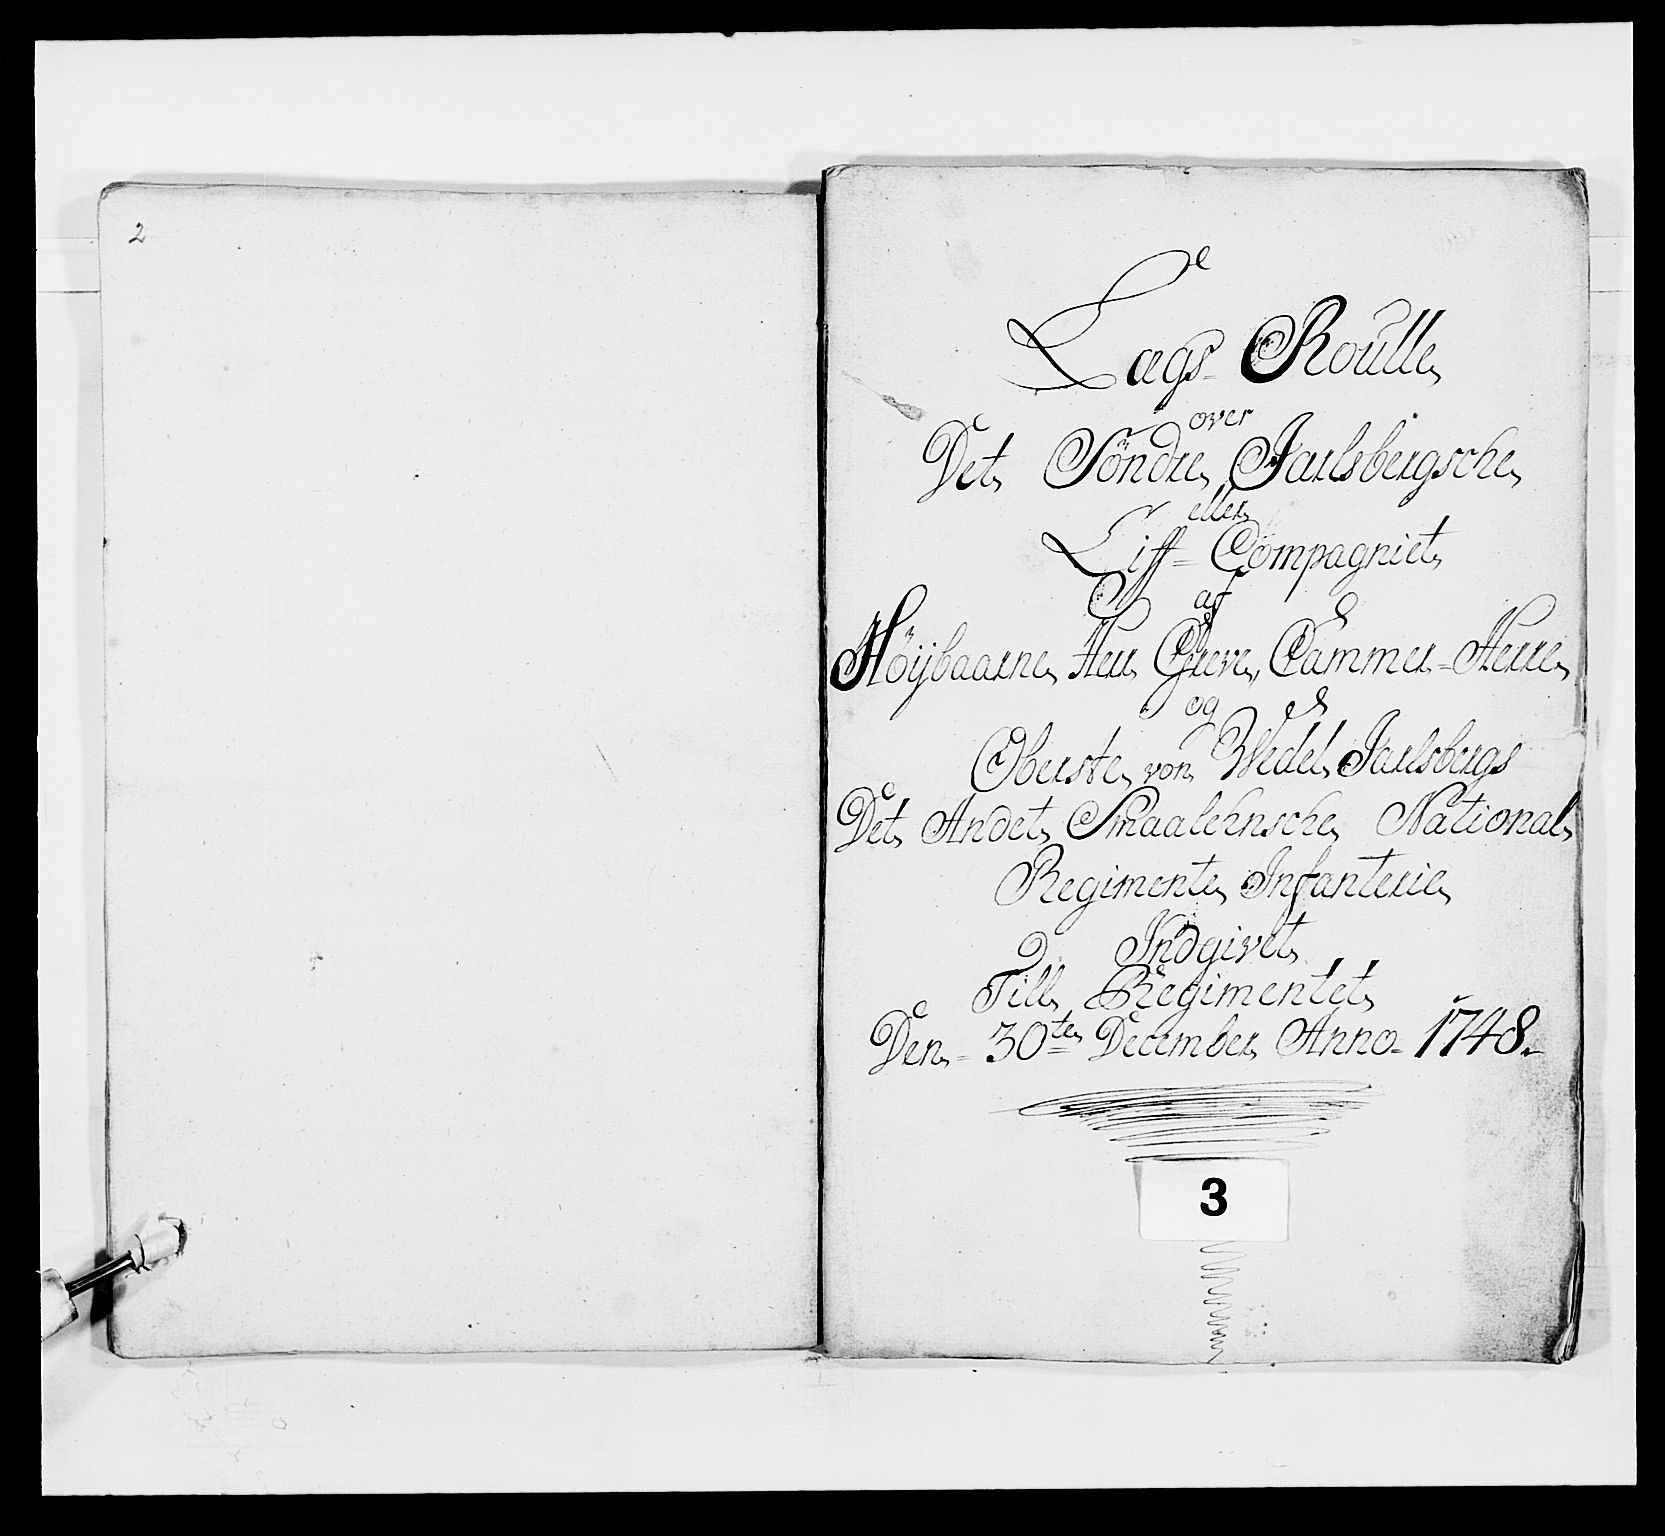 2
Lægs-Roulle
over
Det Söndre Jarlsbergsche
eller
Liff-Compagniet
af
Höijbaarne Herr Greve, Cammer-Herre
og
Oberste von Wedel Jarlsbergs
Det Andet Smaalehnsche National
Regimente Infanterie
Indgivet
Till Regimentet
Den 30te December Anno 1748.
3